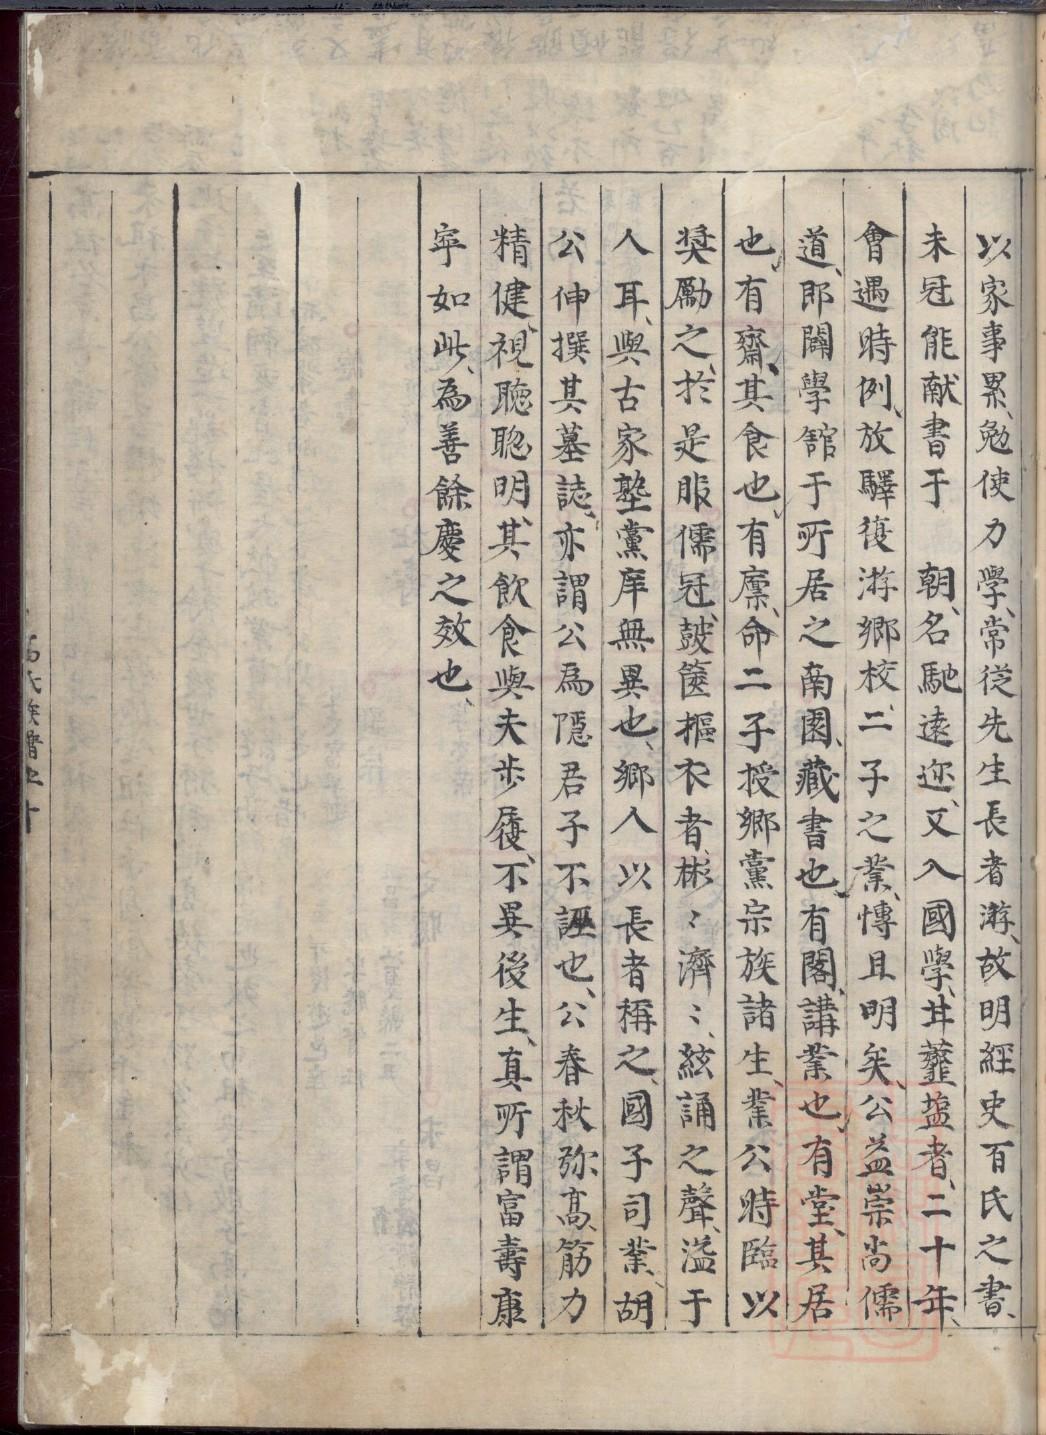 以家事累、勉使力學、常從先生長者游、故明經史百氏之書、
未冠能献書于　朝、名馳遠迩、又入國學、甘虀盐者、二十年、
會遇時例、放驛復游鄉校、二子之業、愽且明矣、公益崇尚儒
道、即闢學舘于所居之南園、藏書也、有閣、講業也、有堂、其居
也、有齋、其食也、有廪、命二子授鄉黨宗族諸生、業公時臨以
奬勵之、於是服儒冠、鼓箧摳衣者、彬〻濟〻、絃誦之聲、溢于
人耳、與古家塾黨庠無異也、鄉人以長者稱之、國子司業、胡
公伸撰其墓誌、亦謂公爲隱君子不誣也、公春秋弥高、筋力
精健、視聽聡明、其飲食與夫步履、不異後生、真所謂富壽康
寜如此、為善餘慶之效也、